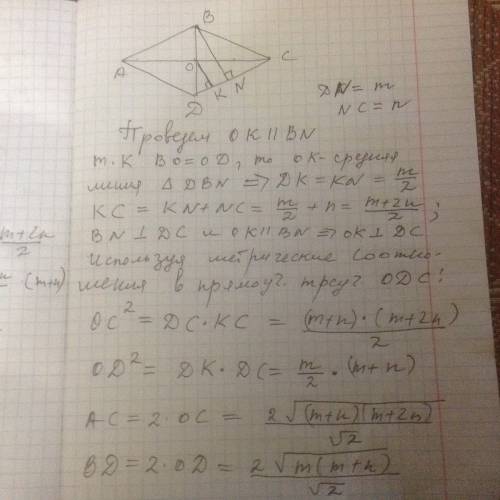 B
A
O
C
D
K
N
DN = m
NC = n
Проведем OK || BN
т.к BO = OD, то OK - средняя
линия Δ DBN ⟹ DK = KN = m/2
KC = KN + NC = m/2 + n = (m+2n)/2 ;
BN ⊥ DC и OK || BN ⟹ OK ⊥ DC
Используя метрические соотно-
шения в прямоуг. треуг. ODC:
OC² = DC · KC = (m+n) · (m+2n) / 2
OD² = DK · DC = m/2 · (m+n)
AC = 2 · OC = 2√((m+n)(m+2n)) / √2
BD = 2 · OD = 2√(m(m+n)) / √2
m+2n
2
(m+n)